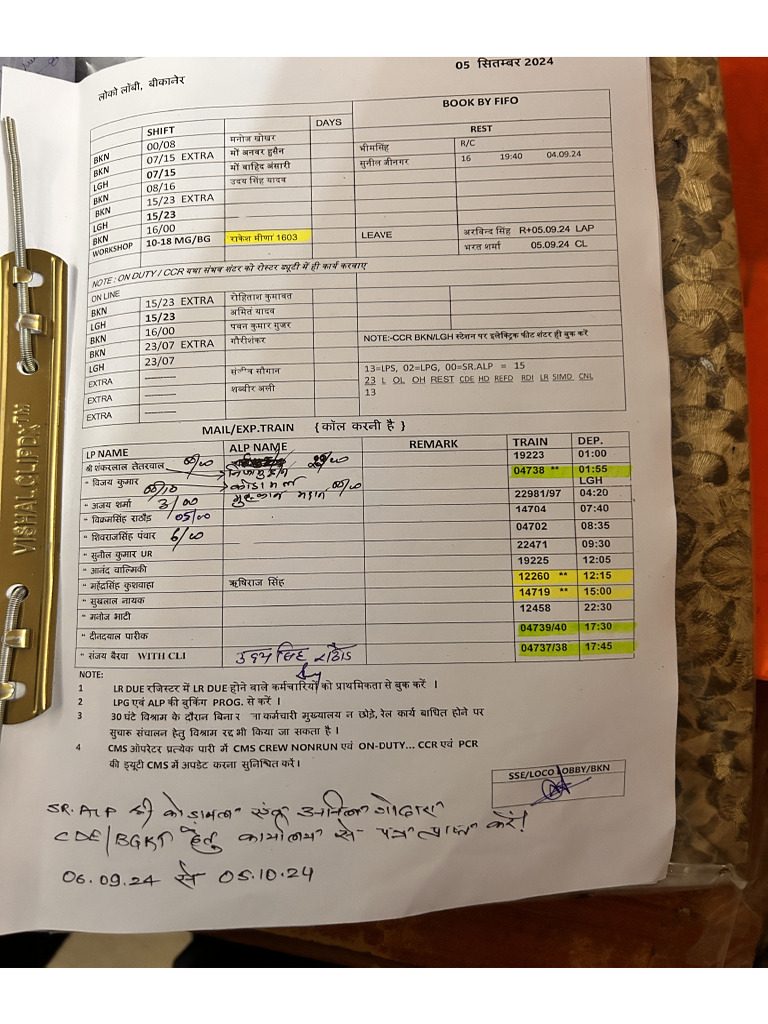 05 सितम्बर 2024
लोको लॉबी, बीकानेर
SHIFT DAYS BOOK BY FIFO
BKN 00/08 मनोज खोखर REST
BKN 07/15 EXTRA मों अनवर हुसैन भीमसिंह R/C
LGH 07/15 मों वाहिद अंसारी सुनील जीनगर 16 19:40 04.09.24
BKN 08/16 उदय सिंह यादव
BKN 15/23 EXTRA
LGH 15/23
BKN 16/00
WORKSHOP 10-18 MG/BG राकेश मीणा 1603 LEAVE अरविन्द सिंह R+05.09.24 LAP
भरत शर्मा 05.09.24 CL
NOTE : ON DUTY / CCR यथा संभव शंटर को रोस्टर ड्यूटी में ही कार्य करवाए
ON LINE
BKN 15/23 EXTRA रोहिताश कुमावत
LGH 15/23 अमित यादव
BKN 16/00 पवन कुमार गुजर
BKN 23/07 EXTRA गौरीशंकर NOTE:-CCR BKN/LGH स्टेशन पर इलेक्ट्रिक फीट शंटर ही बुक करें
LGH 23/07
EXTRA ---------- संजीव सौगान 13=LPS, 02=LPG, 00=SR.ALP = 15
EXTRA ---------- शब्बीर अली 23 L OL OH REST CDE HD REFD RDI LR SIMD CNL
EXTRA ---------- 13
MAIL/EXP.TRAIN {कॉल करनी है }
LP NAME ALP NAME REMARK TRAIN DEP.
श्री शंकरलाल तेतरवाल 00/00 19223 01:00
" विजय कुमार 00/10 04738 ** 01:55 LGH
" अजय शर्मा 3/00 22981/97 04:20
" विक्रमसिंह राठौड 05/00 14704 07:40
" शिवराजसिंह पंवार 6/00 04702 08:35
" सुनील कुमार UR 22471 09:30
" आनंद वाल्मिकी 19225 12:05
" महेंद्रसिंह कुशवाहा ऋषिराज सिंह 12260 ** 12:15
" सुखलाल नायक 14719 ** 15:00
" मनोज भाटी 12458 22:30
" दीनदयाल पारीक 04739/40 17:30
" संजय बैरवा WITH CLI उदय सिंह राठौड 04737/38 17:45
NOTE:
1 LR DUE रजिस्टर में LR DUE होने वाले कर्मचारियों को प्राथमिकता से बुक करें ।
2 LPG एवं ALP की बुकिंग PROG. से करें ।
3 30 घंटे विश्राम के दौरान बिना कर्मचारी मुख्यालय न छोड़े, रेल कार्य बाधित होने पर
सुचारू संचालन हेतु विश्राम रद्द भी किया जा सकता है ।
4 CMS ऑपरेटर प्रत्येक पारी में CMS CREW NONRUN एवं ON-DUTY... CCR एवं PCR
की ड्यूटी CMS में अपडेट करना सुनिश्चित करें।
SSE/LOCO LOBBY/BKN
SR. ALP श्री कोडामल
CDE/BGKT हेतु कार्यालय से पत्र प्राप्त करें!
06.09.24 से 05.10.24
VISHAL CLIPDX™